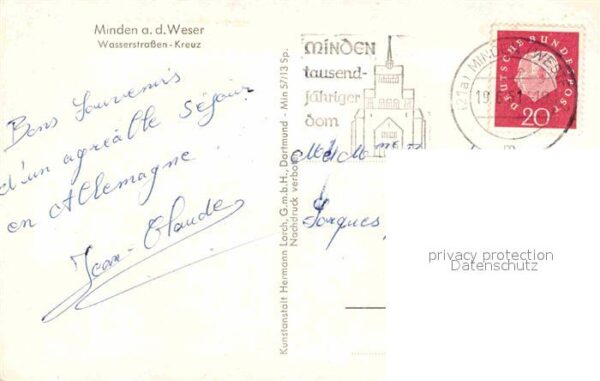 Minden a. d. Weser
Wasserstraßen-Kreuz
Bons Souvenirs
d'un agréable séjour
en Allemagne.
Jean-Claude
Kunstanstalt Hermann Lorch, G.m.b.H., Dortmund - Min 57/13 Sp.
Nachdruck verboten
MINDEN
tausend-
jähriger
dom
(21a) MINDEN (WES
19.
DEUTSCHE BUNDESPOST
20
M et Mme
privacy protection
Datenschutz